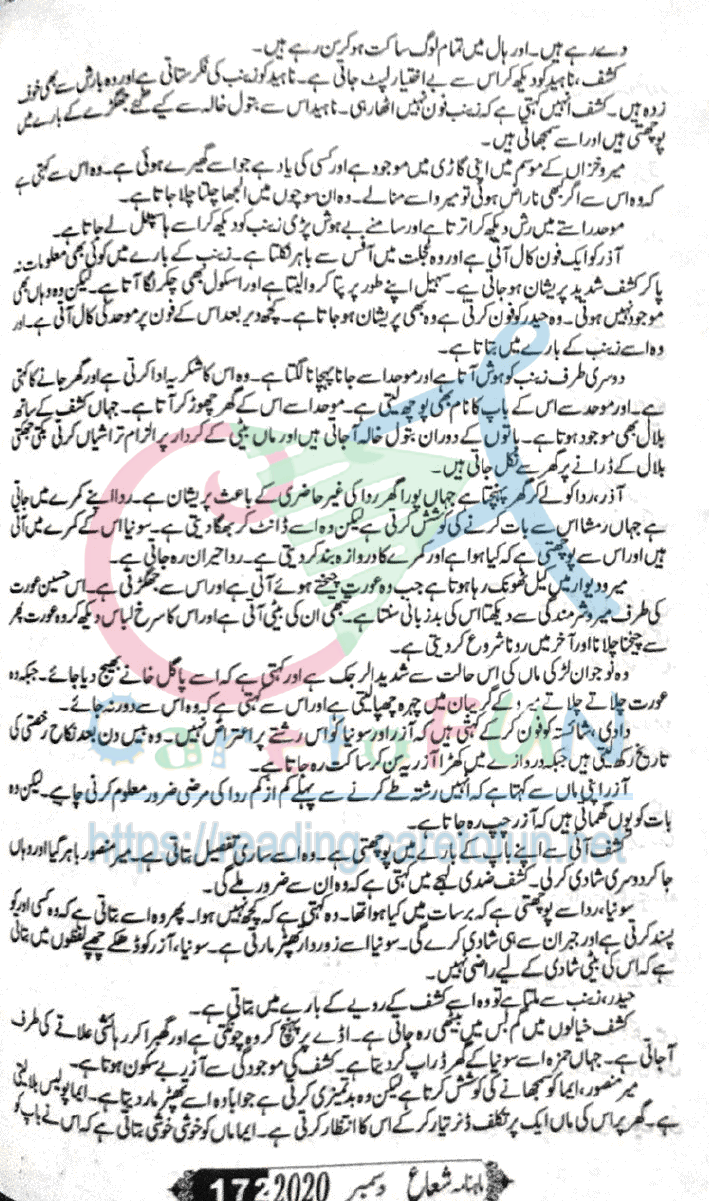 دے رہے ہیں۔ اور ہال میں تمام لوگ ساکت ہو کر سن رہے ہیں۔
کشف، ناہید کو دیکھ کر اس سے بے اختیار لپٹ جاتی ہے۔ ناہید کو زینب کی فکر ستاتی ہے اور وہ بارش سے بھی خوف
زدہ ہیں۔ کشف انہیں کہتی ہے کہ زینب فون نہیں اٹھا رہی۔ ناہید اس سے بتول خالہ سے کیے گئے جھگڑے کے بارے میں
پوچھتی ہیں اور اسے سمجھاتی ہیں۔
میرو خزاں کے موسم میں اپنی گاڑی میں موجود ہے اور کسی کی یاد ہے جو اسے گھیرے ہوئی ہے۔ وہ اس سے کہتی ہے
کہ وہ اس سے اگر بھی ناراض ہوئی تو میرو اسے منا لے۔ وہ ان سوچوں میں الجھا چلتا چلا جاتا ہے۔
موحد راستے میں رش دیکھ کر اترتا ہے اور سامنے بے ہوش پڑی زینب کو دیکھ کر اسے ہاسپٹل لے جاتا ہے۔
آذر کو ایک فون کال آتی ہے اور وہ عجلت میں آفس سے باہر نکلتا ہے۔ زینب کے بارے میں کوئی بھی معلومات نہ
پا کر کشف شدید پریشان ہو جاتی ہے۔ سہیل اپنے طور پر پتا کروا لیتا ہے اور اسکول بھی چکر لگا آتا ہے۔ لیکن وہ وہاں بھی
موجود نہیں ہوتی۔ وہ حیدر کو فون کرتی ہے وہ بھی پریشان ہو جاتا ہے۔ کچھ دیر بعد اس کے فون پر موحد کی کال آتی ہے۔ اور
وہ اسے زینب کے بارے میں بتاتا ہے۔
دوسری طرف زینب کو ہوش آتا ہے اور موحد اسے جانا پہچانا لگتا ہے۔ وہ اس کا شکریہ ادا کرتی ہے اور گھر جانے کا کہتی
ہے۔ اور موحد سے اس کے باپ کا نام بھی پوچھ لیتی ہے۔ موحد اسے اس کے گھر چھوڑ کر آتا ہے۔ جہاں کشف کے ساتھ
بلال بھی موجود ہوتا ہے۔ باتوں کے دوران بتول خالہ آ جاتی ہیں اور ماں بیٹی کے کردار پر الزام تراشیاں کرتی بکتی جھکتی
بلال کے ڈرانے پر گھر سے نکل جاتی ہیں۔
آذر، ردا کو لے کر گھر پہنچتا ہے جہاں پورا گھر ردا کی غیر حاضری کے باعث پریشان ہے۔ ردا اپنے کمرے میں جاتی
ہے جہاں رمشا اس سے بات کرنے کی کوشش کرتی ہے لیکن وہ اسے ڈانٹ کر بھگا دیتی ہے۔ سونیا اس کے کمرے میں آتی
ہیں اور اس سے پوچھتی ہے کہ کیا ہوا ہے اور کمرے کا دروازہ بند کر دیتی ہے۔ ردا حیران رہ جاتی ہے۔
میرو دیوار میں کیل ٹھونک رہا ہوتا ہے جب وہ عورت چیختے ہوئے آتی ہے اور اس سے جھگڑتی ہے۔ اس حسین عورت
کی طرف میرو شرمندگی سے دیکھتا اس کی بدزبانی سنتا ہے۔ تبھی ان کی بیٹی آتی ہے اور اس کا سرخ لباس دیکھ کر وہ عورت پھر
سے چیخنا چلانا اور آخر میں رونا شروع کر دیتی ہے۔
وہ نوجوان لڑکی ماں کی اس حالت سے شدید الرجک ہے اور کہتی ہے کہ اسے پاگل خانے بھیج دیا جائے۔ جبکہ وہ
عورت چلاتے چلاتے میرو کے گریبان میں چہرہ چھپا لیتی ہے اور اس سے کہتی ہے کہ وہ اس سے دور نہ جائے۔
دادی، شائستہ کو فون کر کے کہتی ہیں کہ آذر اور سونیا کو اس رشتے پر اعتراض نہیں۔ وہ بیس دن بعد نکاح رخصتی کی
تاریخ رکھ لیتی ہیں جبکہ دروازے میں کھڑا آذر یہ سن کر ساکت رہ جاتا ہے۔
آذر اپنی ماں سے کہتا ہے کہ انہیں رشتہ طے کرنے سے پہلے کم از کم ردا کی مرضی ضرور معلوم کرنی چاہیے۔ لیکن وہ
بات کو یوں گھماتی ہیں کہ آذر چپ رہ جاتا ہے۔
کشف آنی سے اپنے باپ کے بارے میں پوچھتی ہے۔ وہ اسے ساری تفصیل بتاتی ہے۔ میر منصور باہر گیا اور وہاں
جا کر دوسری شادی کر لی۔ کشف ضدی لہجے میں کہتی ہے کہ وہ ان سے ضرور ملے گی۔
سونیا، ردا سے پوچھتی ہے کہ برسات میں کیا ہوا تھا۔ وہ کہتی ہے کہ کچھ نہیں ہوا۔ پھر وہ اسے بتاتی ہے کہ وہ کسی اور کو
پسند کرتی ہے اور جبران سے ہی شادی کرے گی۔ سونیا اسے زوردار تھپڑ مارتی ہے۔ سونیا، آذر کو ڈھکے چھپے لفظوں میں بتاتی
ہے کہ اس کی بیٹی شادی کے لیے راضی نہیں۔
حیدر، زینب سے ملتا ہے تو وہ اسے کشف کے رویے کے بارے میں بتاتی ہے۔
کشف خیالوں میں گم بس میں بیٹھی رہ جاتی ہے۔ اڈے پر پہنچ کر وہ چونکتی ہے اور گھبرا کر رہائشی علاقے کی طرف
آ جاتی ہے۔ جہاں حمزہ اسے سونیا کے گھر ڈراپ کر دیتا ہے۔ کشف کی موجودگی سے آذر بے سکون ہوتا ہے۔
میر منصور، ایما کو سمجھانے کی کوشش کرتا ہے لیکن وہ بدتمیزی کرتی ہے جوابا وہ اسے تھپڑ مار دیتا ہے۔ ایما پولیس بلا لیتی
ہے۔ گھر پر اس کی ماں ایک پر تکلف ڈنر تیار کر کے اس کا انتظار کرتی ہے۔ ایما ماں کو خوشی خوشی بتاتی ہے کہ اس نے باپ کو
CaretoFUN
https://reading.caretofun.net
ماہنامہ شعاع دسمبر 2020 173